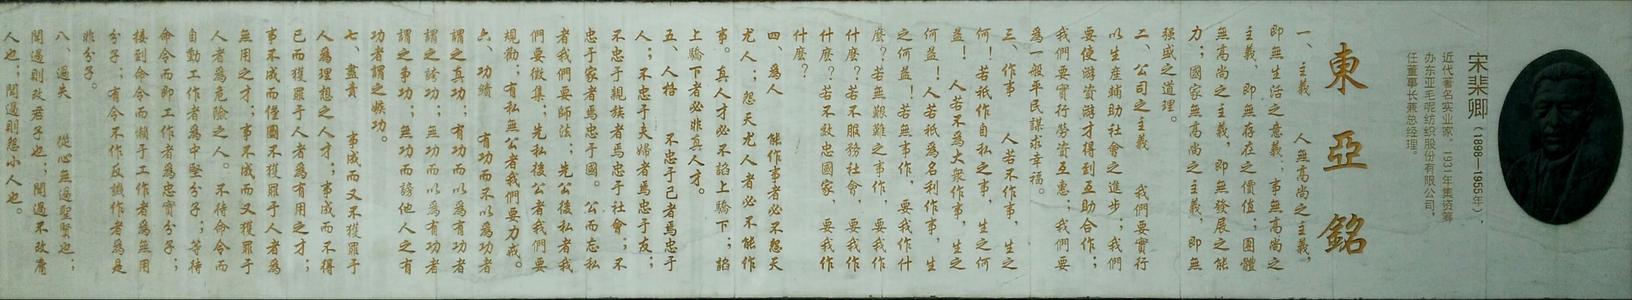 宋棐卿（1898—1955年），
近代著名实业家，1931年集资筹
办东亚毛呢纺织股份有限公司，
任董事长兼总经理。
東亞銘
一、主義　人無高尚之主義，
即無生活之意義，事無高尚之
主義，即無存在之價值，團體
無高尚之主義，即無發展之能
力；國家無高尚之主義，即無
强盛之道理。
二、公司之主義　我們要實行
以生産輔助社會之進步；我們
要使游資游才得到互助合作；
我們要實行勞資互惠；我們要
爲一般平民謀求幸福。
三、作事　人若不作事，生之
何！若祇作自私之事，生之何
益！　人若不爲大衆作事，生之
何益！人若祇爲名利作事，生
之何益！若無事作，要我作什
麼？若無艱難之事作，要我作
什麼？若不服務社會，要我作
什麼？若不效忠國家，要我作
什麼？
四、爲人　能作事者必不怨天
尤人；怨天尤人者必不能作
事。真人才必不諂上驕下；諂
上驕下者必非真人才。
五、人格　不忠于己者焉忠于
人；不忠于夫婦者焉忠于友；
不忠于親族者焉忠于社會；不
忠于家者焉忠于國。公而忘私
者我們要師法；先公後私者我
們要徵集；先私後公者我們要
規勸；有私無公者我們要力戒。
六、功績　有功而不以爲功者
謂之真功；有功而以爲有功者
謂之誇功；無功而以爲有功者
謂之事功；無功而謗他人之有
功者謂之嫉功。
七、盡責　事成而又不獲罪于
人爲理想之人才；事成而不得
已而獲罪于人者爲有用之才；
事不成而僅圖不獲罪于人者爲
無用之才；事不成而又獲罪于
人者爲危險之人。不待命令而
自動工作者爲中堅分子；等待
命令而即工作者爲忠實分子；
接到命令而懶于工作者爲無用
分子；有令不作反譏作者爲是
非分子。
八、過失　從心無過聖賢也；
聞過則改君子也；聞過不改庸
人也；聞過則怨小人也。